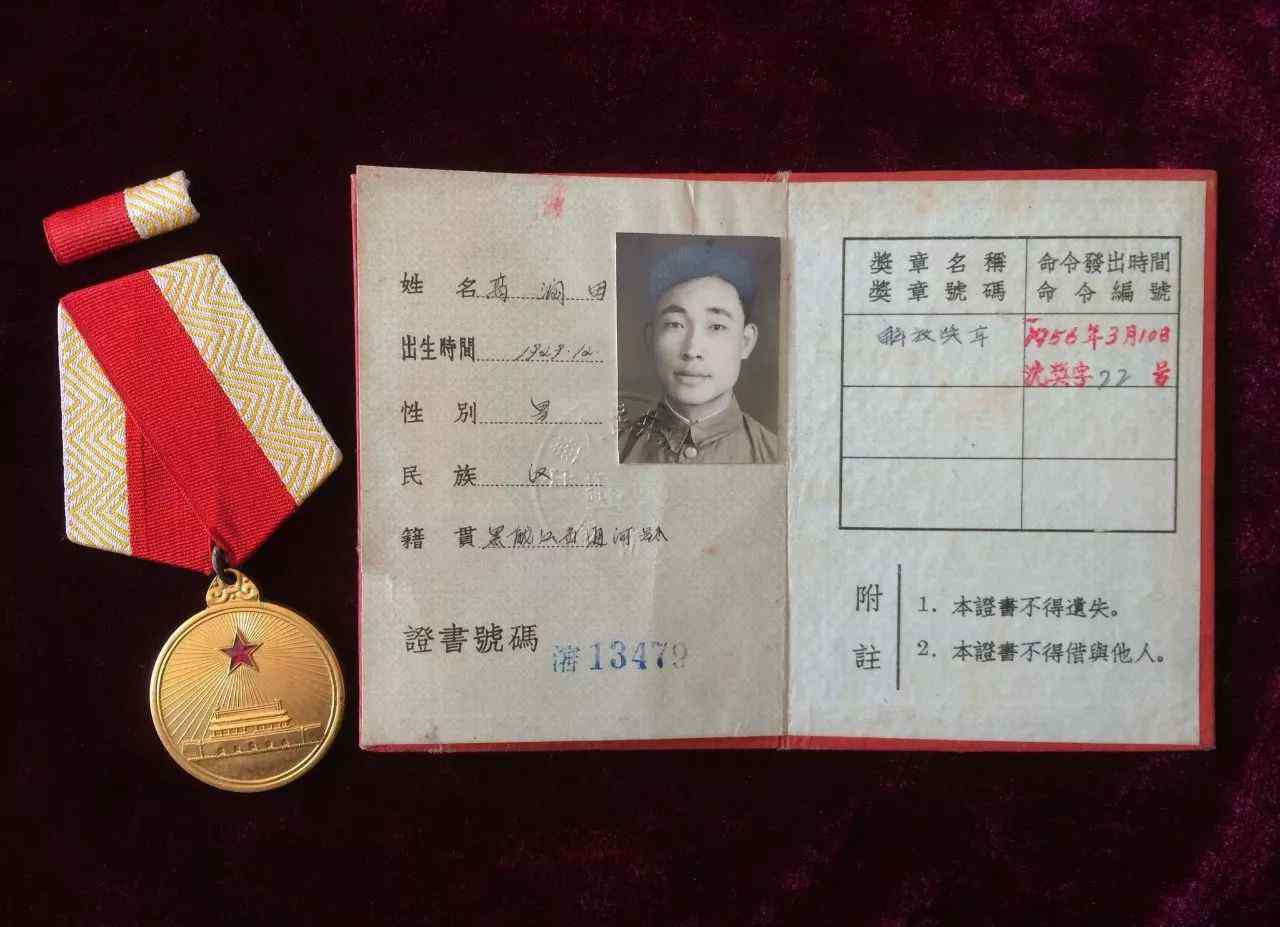 姓 名 高 润 田
出生時間 1929.12
性 別 男
民 族 汉
籍 貫 黑龍江省通河縣
證書號碼 瀋13479
獎章名稱 命令發出時間
獎章號碼 命令編號
解放奖章 1956年3月10日
沈獎字22号
附註
1. 本證書不得遺失。
2. 本證書不得借與他人。